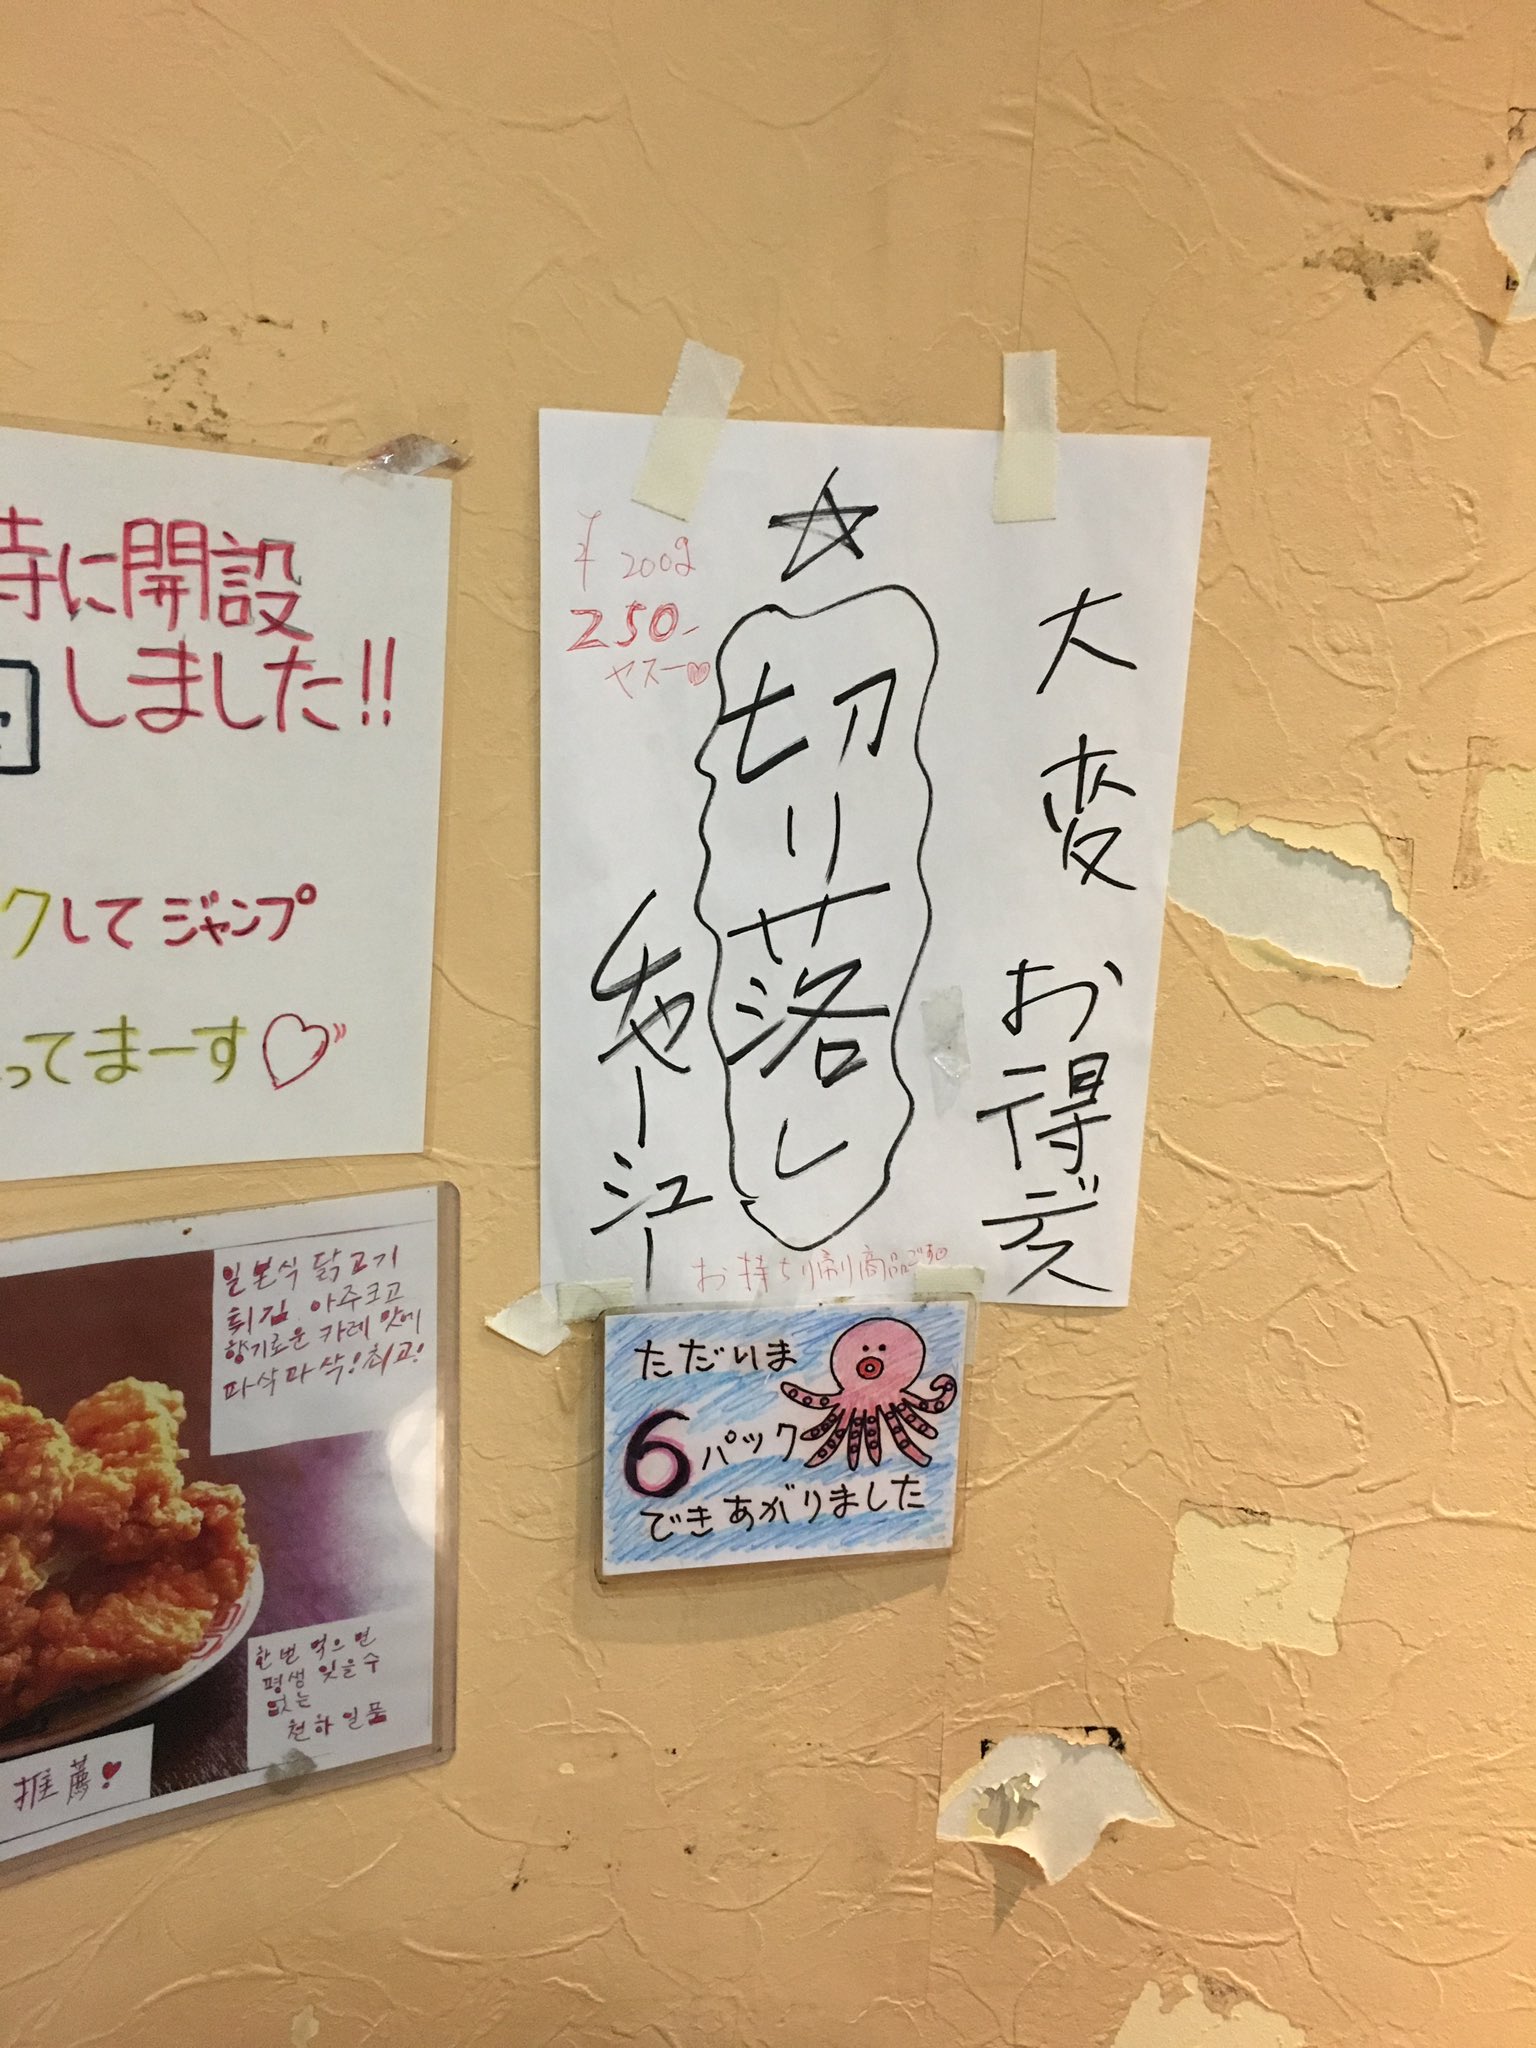 時に開設
しました!!
クしてジャンプ
ってまーす♡
大変お得デス
☆切り落し
ちゃーシュー
¥200g
250-
ヤスー♡
お持ち帰り商品です
ただいま
6パック
できあがりました
일본식 닭고기
튀김. 아주크고
향기로운 카레 맛에
파삭파삭! 최고!
한번 먹으면
평생 잊을수
없는
천하일품
推薦!